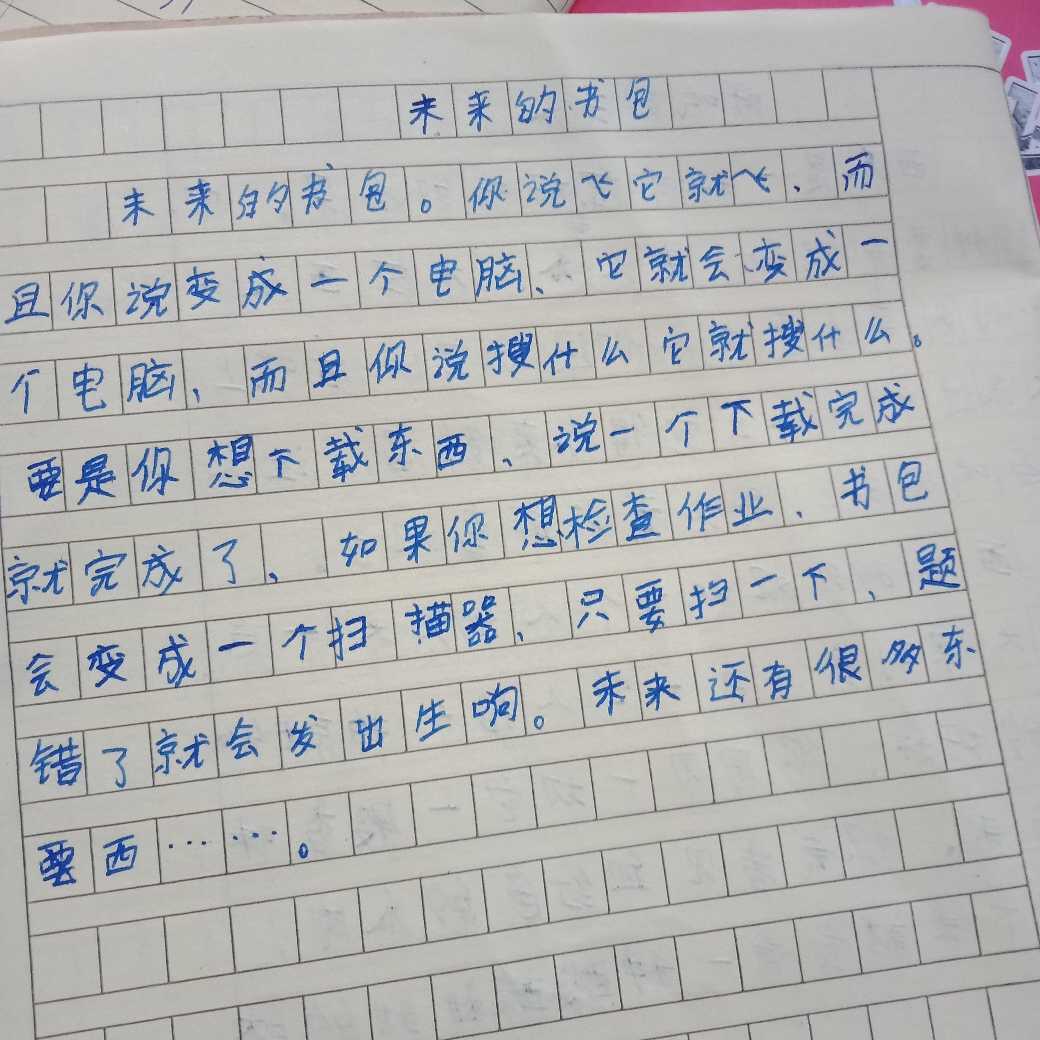 未来的书包
未来的书包。你说飞它就飞、而
且你说变成一个电脑、它就会变成一
个电脑、而且你说搜什么它就搜什么。
要是你想下载东西、说一个下载完成
就完成了、如果你想检查作业、书包
会变成一个扫描器、只要扫一下、题
错了就会发出生响。未来还有很多东
西……。